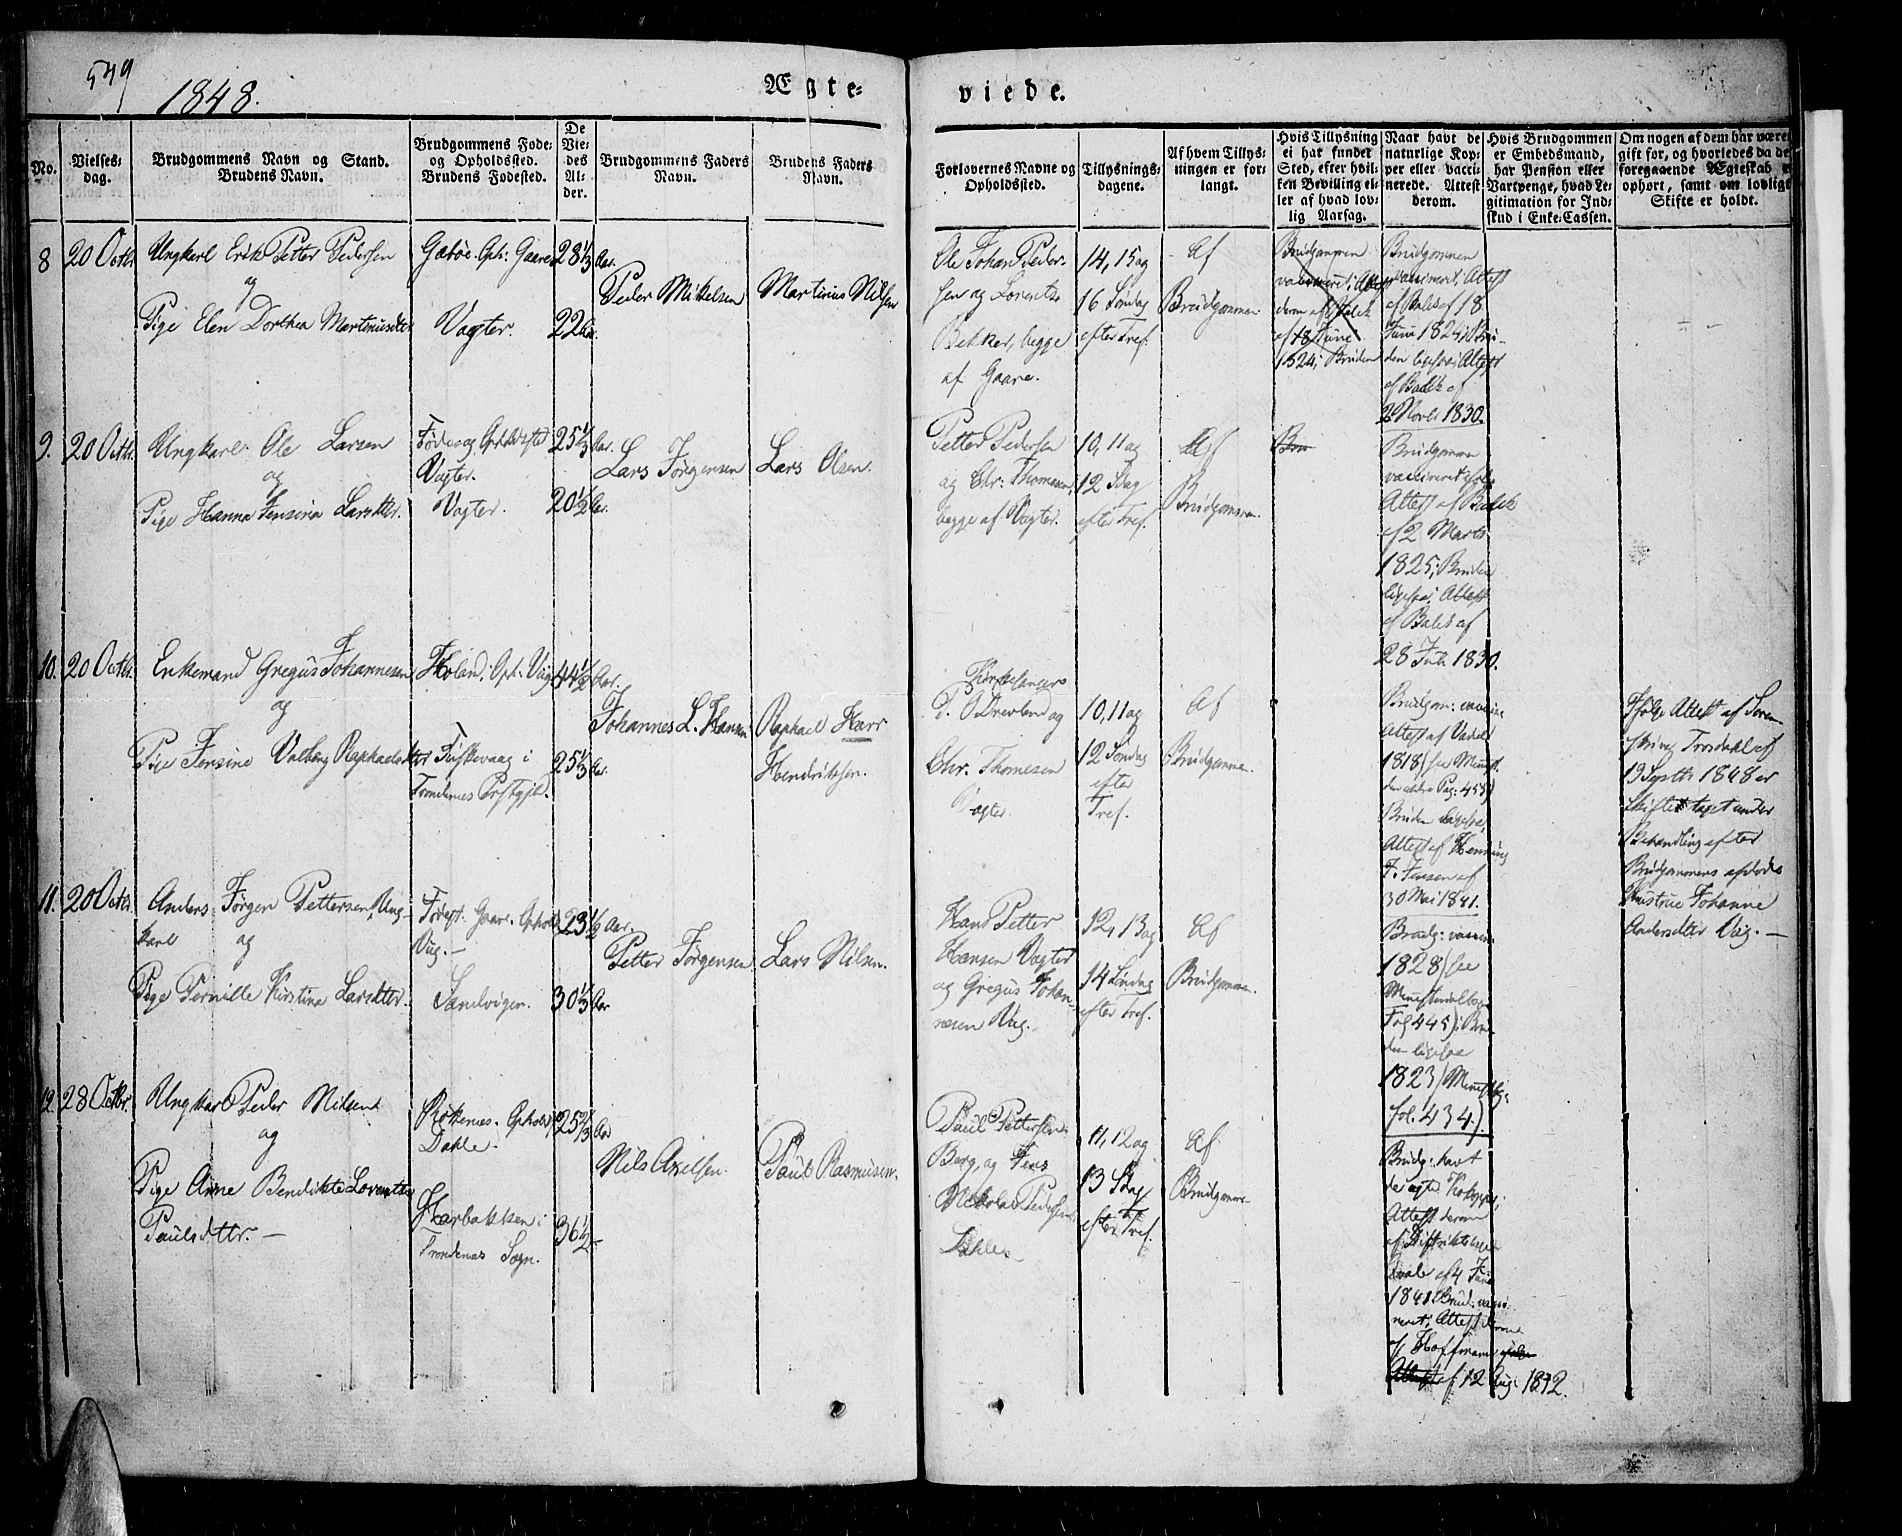 549
1848.
Ægte-
viede.
No.
Vielses-
dag.
Brudgommens Navn og Stand.
Brudens Navn.
Brudgommens Føde-
og Opholdssted.
Brudens Fødested.
De
Vie-
des
Al-
der.
Brudgommens Faders
Navn.
Brudens Faders
Navn.
Forlovernes Navne og
Opholdssted.
Tillysnings-
dagene.
Af hvem Tillys-
ningen er for-
langt.
Hvis Tillysning
ei har fundet
Sted, efter hvil-
ken Bevilling el-
ler af hvad lov-
lig Aarsag.
Naar havt de
naturlige Kop-
per eller vacci-
nerede. Attest
derom.
Hvis Brudgommen
er Embedsmand,
har Pension eller
Vartpenge, hvad Le-
gitimation for Ind-
skud i Enke-Cassen.
Om nogen af dem har været
gift før, og hvorledes da de
foregaaende Ægteskab
ophørt, samt om lovligt
Skifte er holdt.
8
20 Octbr.
Ungkarl Erik Petter Pedersen
og
Pige Elen Dorthea Martinusdtr
Gaare
Vagter.
28 1/3 Aar.
22 Aar.
Peder Mikelsen
Martinus Nilsen
Ole Johan Peder-
sen og Lorents
Bekker, begge
af Gaare.
14, 15 og
16 Søndag
efter Tref.
Af
Brudgommen
Brudgommen
vaccineret; Attest
derom af Balck
af 18 Juni
1824; Bruden
Brudgommen
vaccineret; Attest
af Balck af 18
Juni 1824; Bru-
den ligesaa; Attest
af Balck af
Novb. 1830.
9.
20 Octbr.
Ungkarl Ole Larsen
og
Pige Hanna Jensine Larsdtter.
Føde og Opholdssted
Vagter.
Vagter.
25 1/3 Aar.
20 1/2 Aar.
Lars Jørgensen
Lars Olsen.
Petter Pedersen
og Chr: Thomesen,
begge af Vagter.
10, 11 og
12 Sdag
efter Tref.
Af
Brudgommen.
Bru
Brudgommen
vaccineret ifølge
Attest af Balck
af 2 Marts
1825; Bruden
ligesaa; Attest
af Balck af
28 Juli 1830.
10.
20 Octbr.
Enkemand Gregus Johannesen
og
Pige Jensine Valborg Raphaelsdtter
44 1/2 Aar.
Fuskevaag i
Trondenes Prstgjld.
25 1/3 Aar.
Johannes L. Hansen
Raphael Harr
Hendriksen.
Kirkesanger
P. O. Drevland og
Chr. Thomesen
Vagter.
10, 11 og
12 Søndag
efter
Tref.
Af
Brudgommen.
Brudgom: vaccine
Attest af
1818 (see Minist.
den ældre Pag: 455)
Bruden ligesaa,
Attest af Henning
J. Jensen af
30 Mai 1841.
Ifølge Attest af Soren-
skriver Trosdahl af
19 Septbr 1848 er
Skiftet taget under
Behandling efter
Brudgommens afdøde
Hustrue Johanne
Andersdtter Vig. —
11.
20 Octbr.
Anders Jørgen Pettersen, Ung-
karl og
Pige Pernille Kirstina Larsdtter.
Fødest. Gaare. Ophold
Vig. —
Sandvigen.
23 1/2 Aar.
30 1/3 Aar
Petter Jørgensen
Lars Nilsen.
Hans Petter
Hansen Vagter
og Gregus Johan-
nesen Vig.
12, 13 og
14 Søndag
efter Tref.
Af
Brudgommen.
Brudg: vaccin:
1828 (see
Ministerialbog
Fol 445); Bru-
den ligesaa
1823 (Ministbg:
fol. 434.)
12.
28 Octbr.
Ungkarl Peder Nilsen
og
Pige Anne Bendikte Lorentse
Paulsdttr. —
Rokenes. Ophold
Dahle.
Harbakken i
Trondenes Sogn.
25 2/3 Aar
36 1/2 —
Nils Axelsen.
Paul Rasmusen.
Paul Pettersen
Berg, og Jens
Nikolai Pedersen
Dahle.
11, 12 og
13 Sdag
efter Tref.
Af
Brudgommen
Brudg: havt
de ægte Kopper;
Attest derom
af Distriktslæge
af 4 Juni
1841. Brud: vacci-
neret; Attest derom
af
Attest af 12 Aug: 1812.